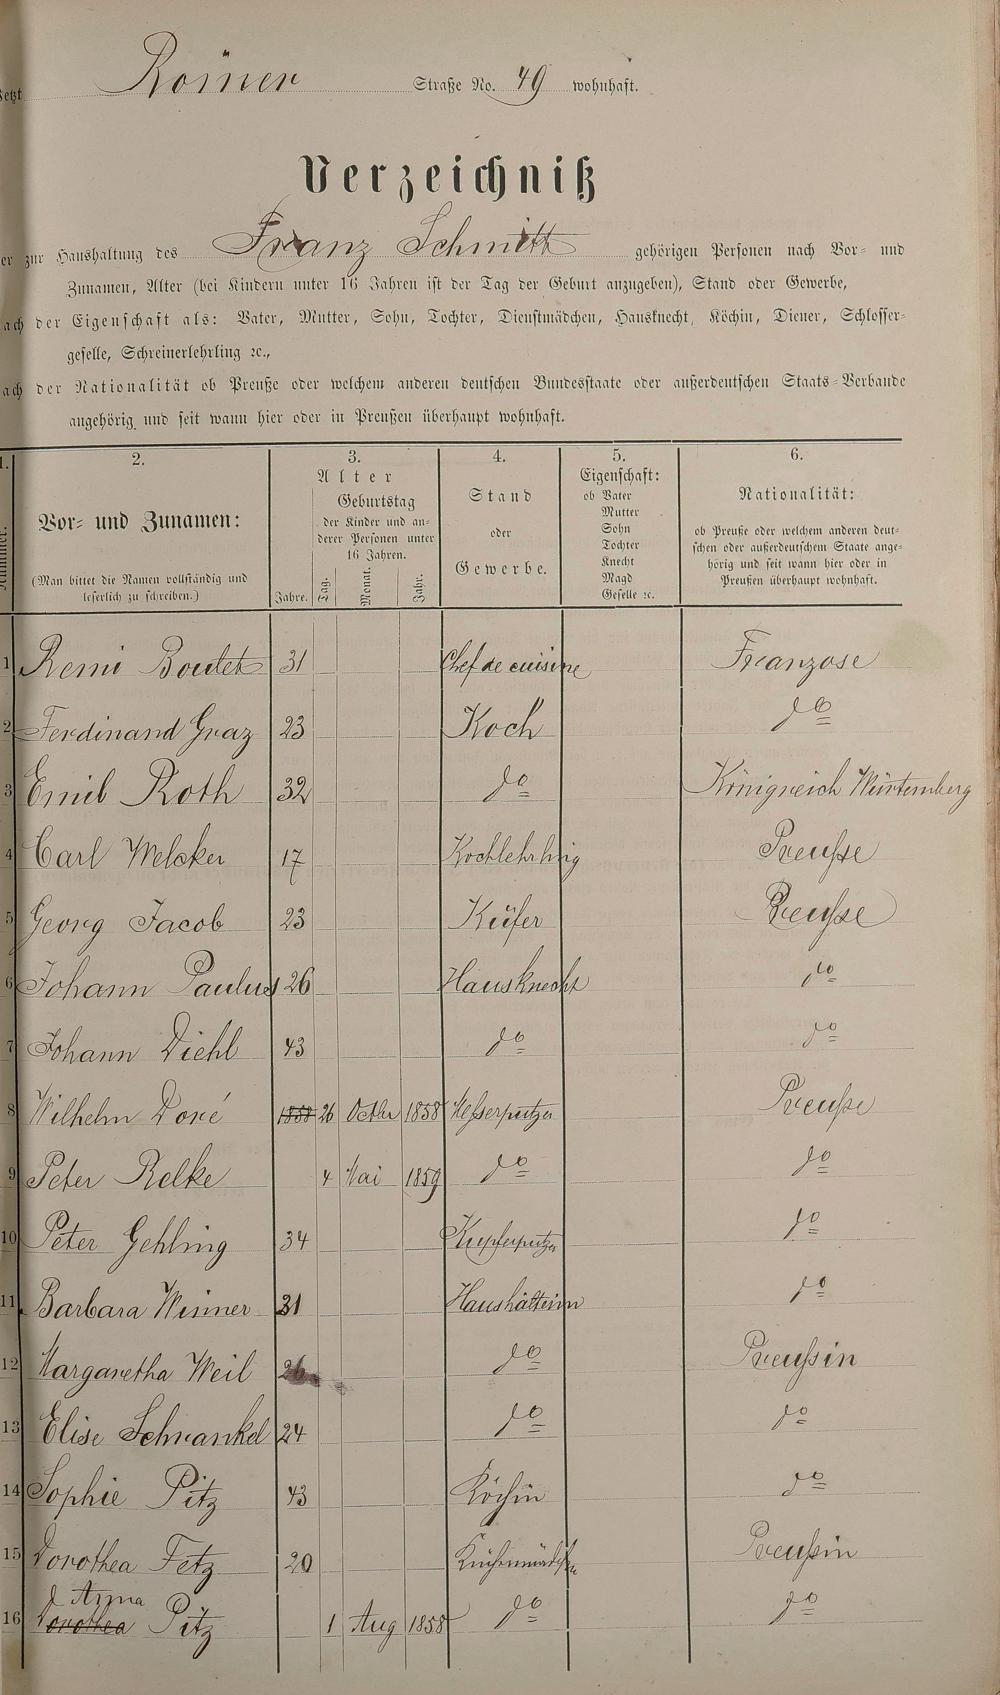 Jetzt Römer Straße No. 49 wohnhaft.
Verzeichniß
er zur Haushaltung des Franz Schmitt gehörigen Personen nach Vor- und
Zunamen, Alter (bei Kindern unter 16 Jahren ist der Tag der Geburt anzugeben), Stand oder Gewerbe,
ach der Eigenschaft als: Vater, Mutter, Sohn, Tochter, Dienstmädchen, Hausknecht, Köchin, Diener, Schlosser-
geselle, Schreinerlehrling ꝛc.,
ach der Nationalität ob Preuße oder welchem anderen deutschen Bundesstaate oder außerdeutschen Staats-Verbande
angehörig und seit wann hier oder in Preußen überhaupt wohnhaft.
1. 2. 3. 4. 5. 6.
Nummer.
Vor- und Zunamen:
(Man bittet die Namen vollständig und
leserlich zu schreiben.)
Alter
Geburtstag
der Kinder und an-
derer Personen unter
16 Jahren.
Jahre. Tag. Monat. Jahr.
Stand
oder
Gewerbe.
Eigenschaft:
ob Vater
Mutter
Sohn
Tochter
Knecht
Magd
Geselle ꝛc.
Nationalität:
ob Preuße oder welchem anderen deut-
schen oder außerdeutschem Staate ange-
hörig und seit wann hier oder in
Preußen überhaupt wohnhaft.
1 Remi Boutet 31 Chef de cuisine Franzose
2 Ferdinand Graz 23 Koch do
3 Emil Roth 32 do Königreich Würtemberg
4 Carl Welcker 17 Kochlehrling Preuße
5 Georg Jacob 23 Küfer Preuße
6 Johann Paulus 26 Hausknecht do
7 Johann Diehl 43 do do
8 Wilhelm Doré 1858 26 Octbr 1858 Messerputzer Preuße
9 Peter Relke 4 Mai 1859 do do
10 Peter Gehling 34 Kupferputzer do
11 Barbara Wisner 31 Haushälterin do
12 Margaretha Weil 26 do Preußin
13 Elise Schrankel 24 do do
14 Sophie Pitz 43 Köchin do
15 Dorothea Fetz 20 Küchenmädchen Preußin
Anna
16 Dorothea Pitz 1 Aug 1858 do do